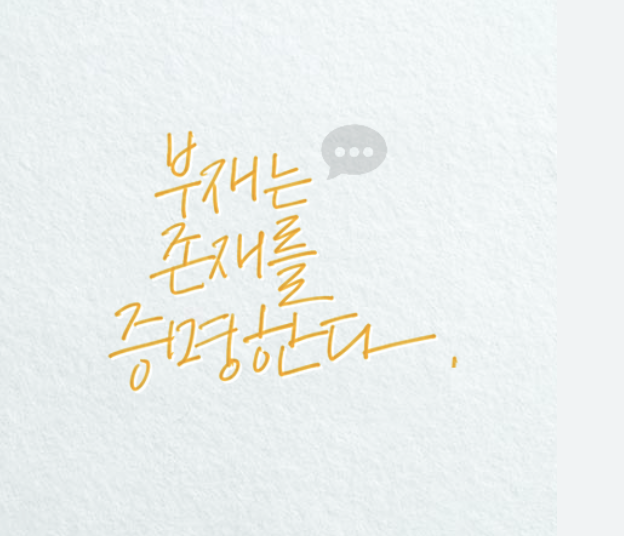 부재는
존재를
증명한다.